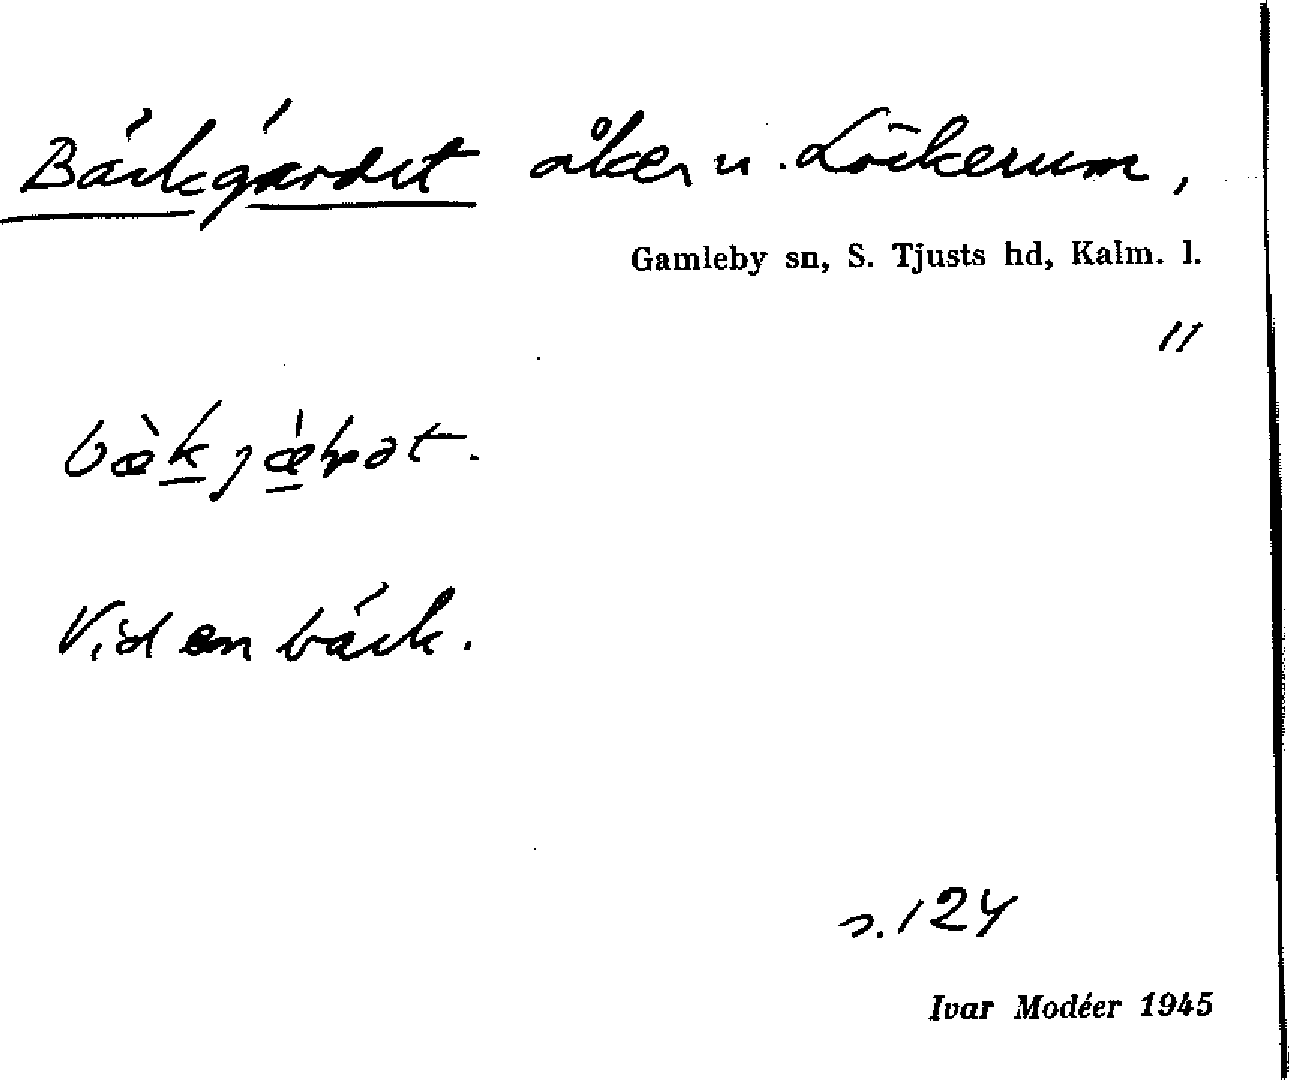 Bäckgärdet åker u. Lökerum,
Gamleby sn, S. Tjusts hd, Kalm. l.
"
Vid en bäck.
s. 124
Ivar Modéer 1945